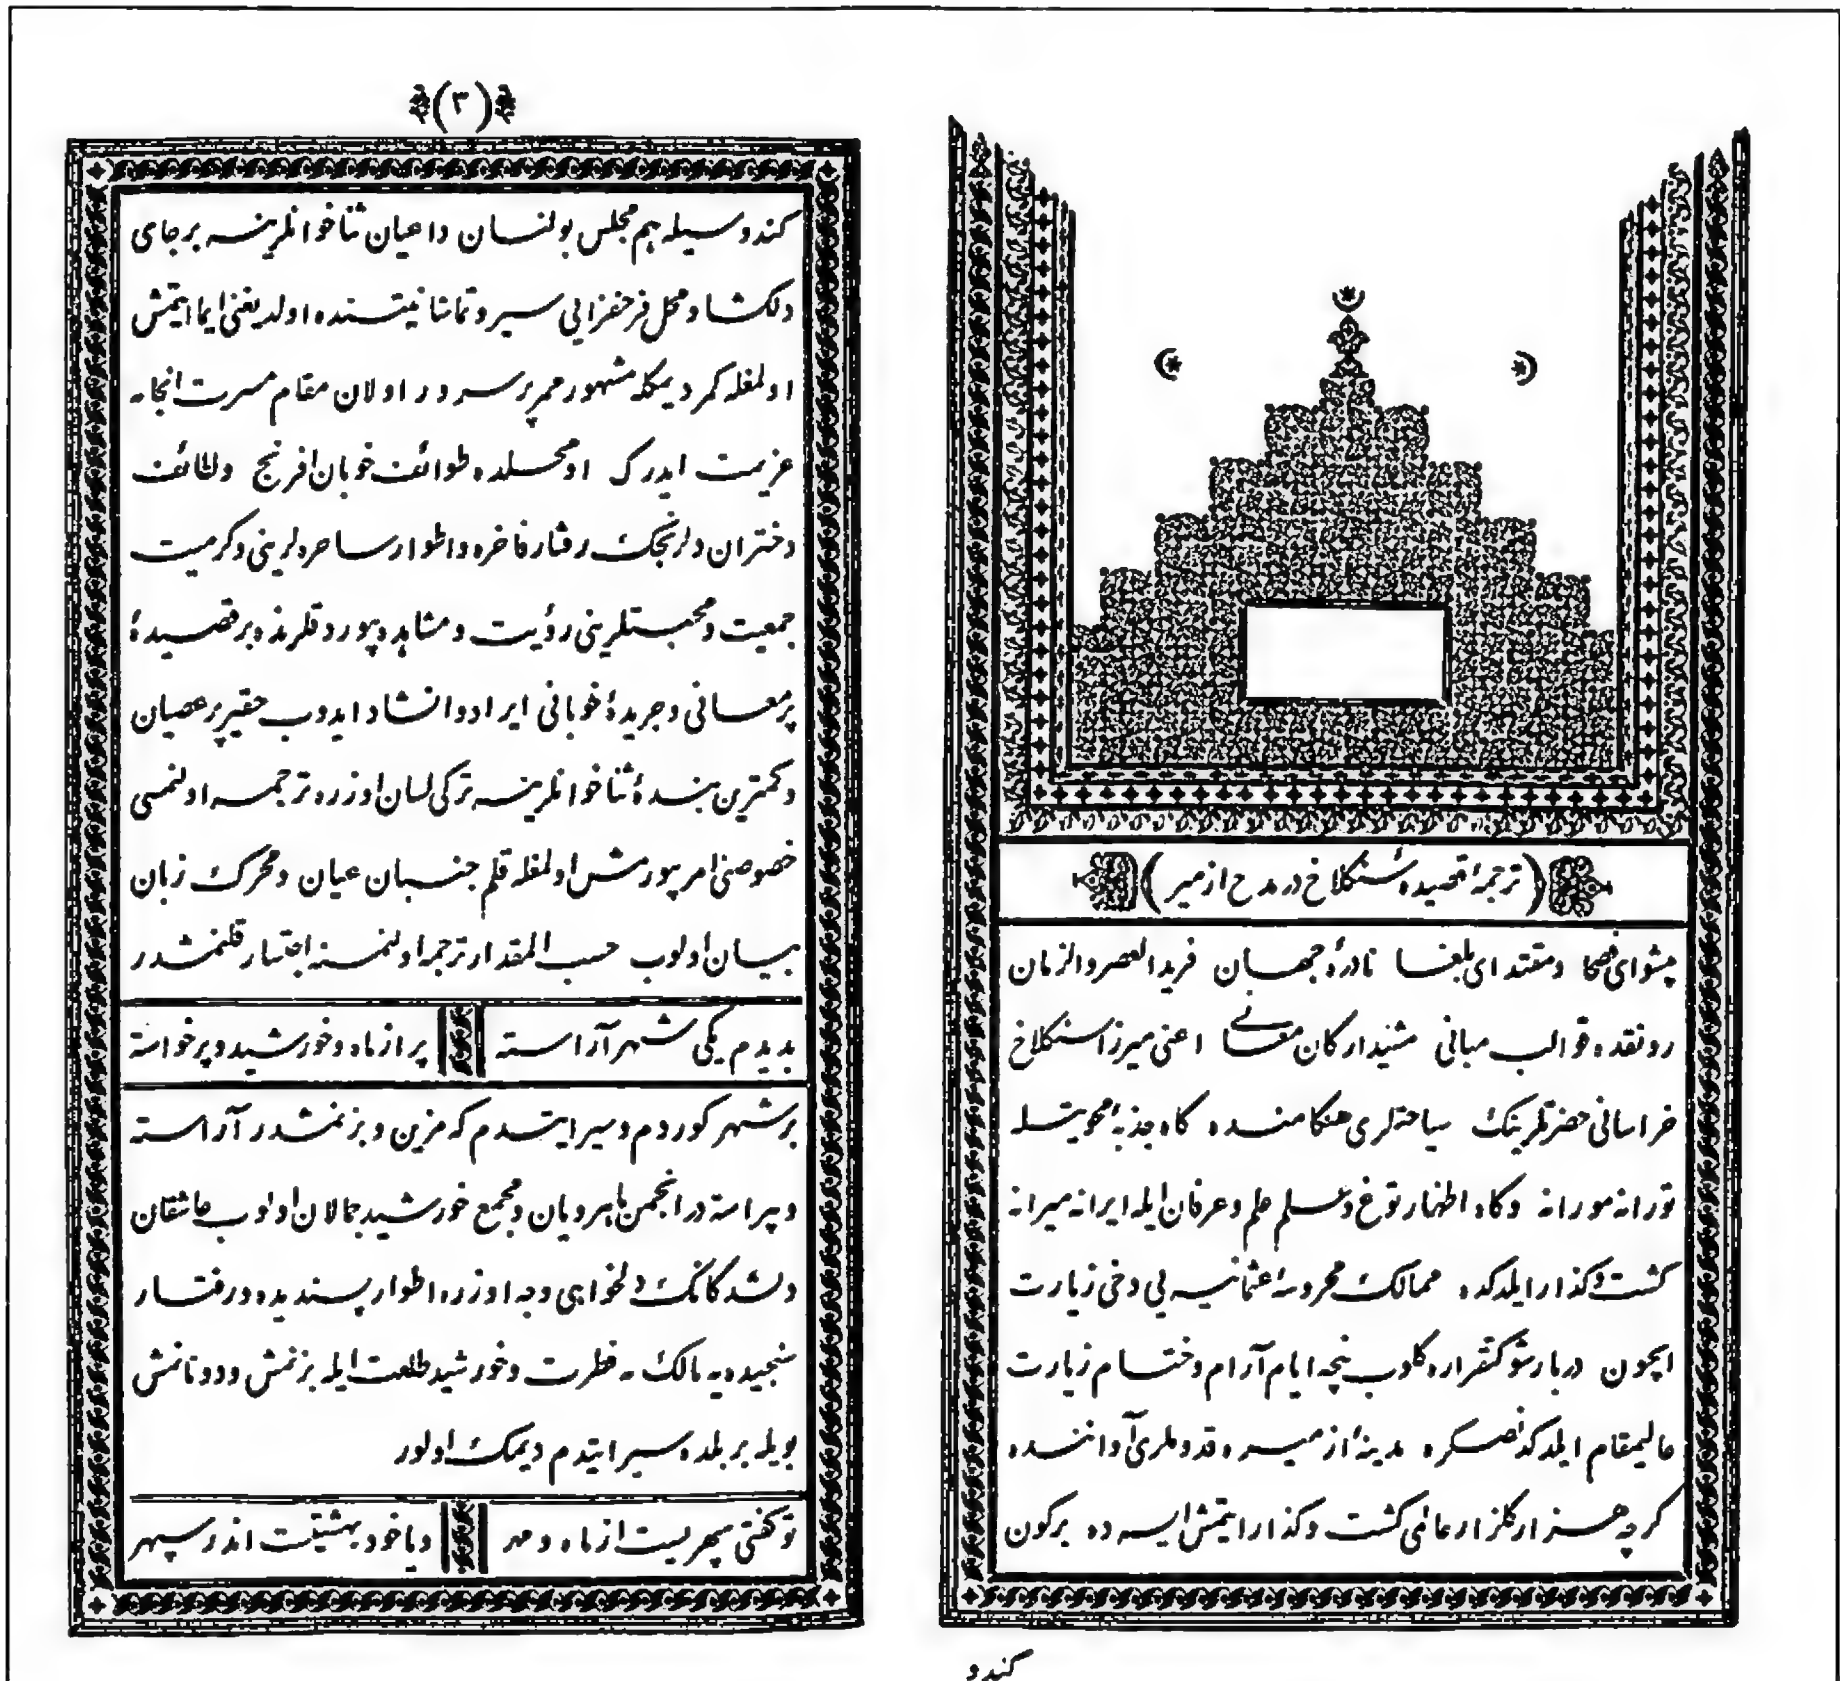 (ترجمهٔ قصیدهٔ سنکلاخ در مدح ازمیر)
پیشوای فصحا ومقتدای بلغا نادرهٔ جهان فرید العصر والزمان
رونقده قوالب مبانی مشید ارکان معانی اعنی میرزا سنکلاخ
خراسانی حضرتلرینک سیاحتلری هنکامنده کاه جذبهٔ محویتله
تورانه مورانه وکاه اظهار توغ وعلم علم وعرفان ایله ایرانه میرانه
کشت وکذار ایلدکده ممالک محروسهٔ عثمانیه یی دخی زیارت
ایچون دربار شوکتقراره کلوب نیچه ایام آرام وختام زیارت
عالیمقام ایلدکدنصکره مدینهٔ ازمیره قدوملری آواننده
کرچه هزار کلزار عالمی کشت وکذار ایتمش ایسه ده برکون
کندو
(٣)
کندوسیله هم مجلس بولنسان داعیان ثناخوانلرینه برجای
دلکشا ومحل فرحفزایی سیر وتماشا نیتنده اولدیغنی ایما ایتمش
اولمغله کمر دیمکله مشهور ممر پرسرور اولان مقام مسرت انجامه
عزیمت ایدرک اومحلده طوائف خوبان افرنج ولطائف
دختران دلرنجک رفتار فاخره واطوار ساحره لرینی وکرمیت
جمعیت ومحبتلرینی رؤیت ومشاهده بیوردقلرنده برقصیدهٔ
پرمعانی وجریدهٔ خوبانی ایراد وانشاد ایدوب حقیر پرعصیان
وکمترین بندهٔ ثناخوانلرینه ترکی لسان اوزره ترجمه اولنمسی
خصوصنی امر بیورمش اولمغله قلم جنبان عیان ومحرک زبان
بیان اولوب حسب المقدار ترجمه اولنمسنه ابتدار قلنمشدر
بدیدم یکی شهر آراسته پر از ماه وخورشید وپرخواسته
برشهر کوردم وسیر ایتدم که مزین وبزنمشدر آراسته
وپیراسته در انجمن ماهرویان ومجمع خورشید جمالان اولوب عاشقان
دلشدکانک دلخواهی وجه اوزره اطوار پسندیده ورفتار
سنجیده یه مالک مه فطرت وخورشید طلعت ایله بزنمش ودونانمش
بویله بر بلده سیر ایتدم دیمک اولور
توکفتی سپهریست از ماه ومهر ویا خود بهشتیست اندر سپهر